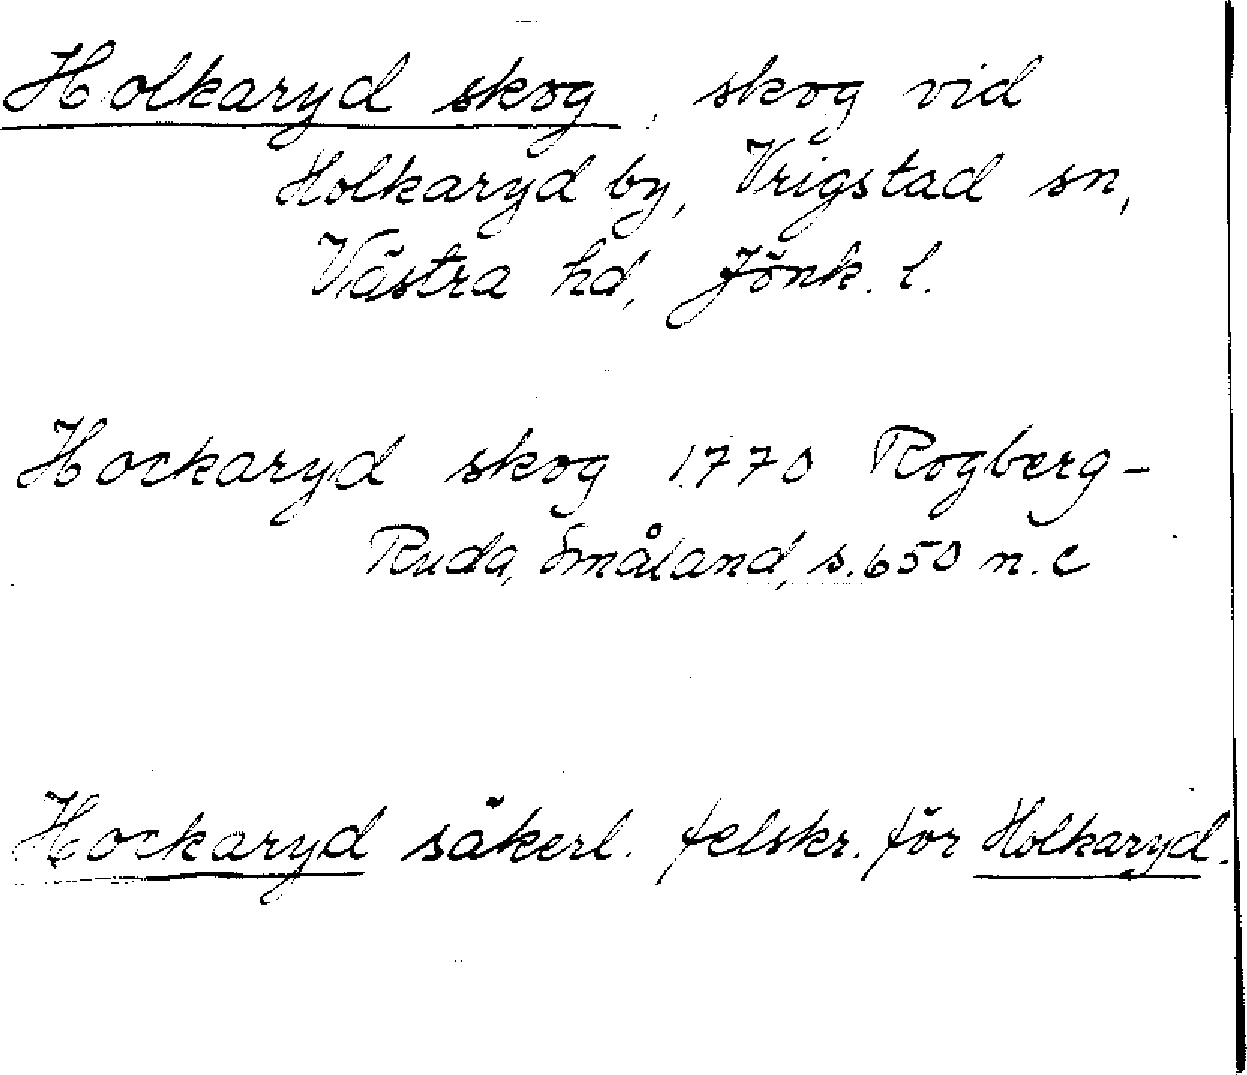 Holkaryd skog, skog vid
Holkaryd by, Vrigstad sn,
Västra hd, Jönk. l.
Hockaryd skog 1770 Rogberg-
Ruda, Småland, s. 650 n. c
Hockaryd säkerl. felskr. för Holkaryd.